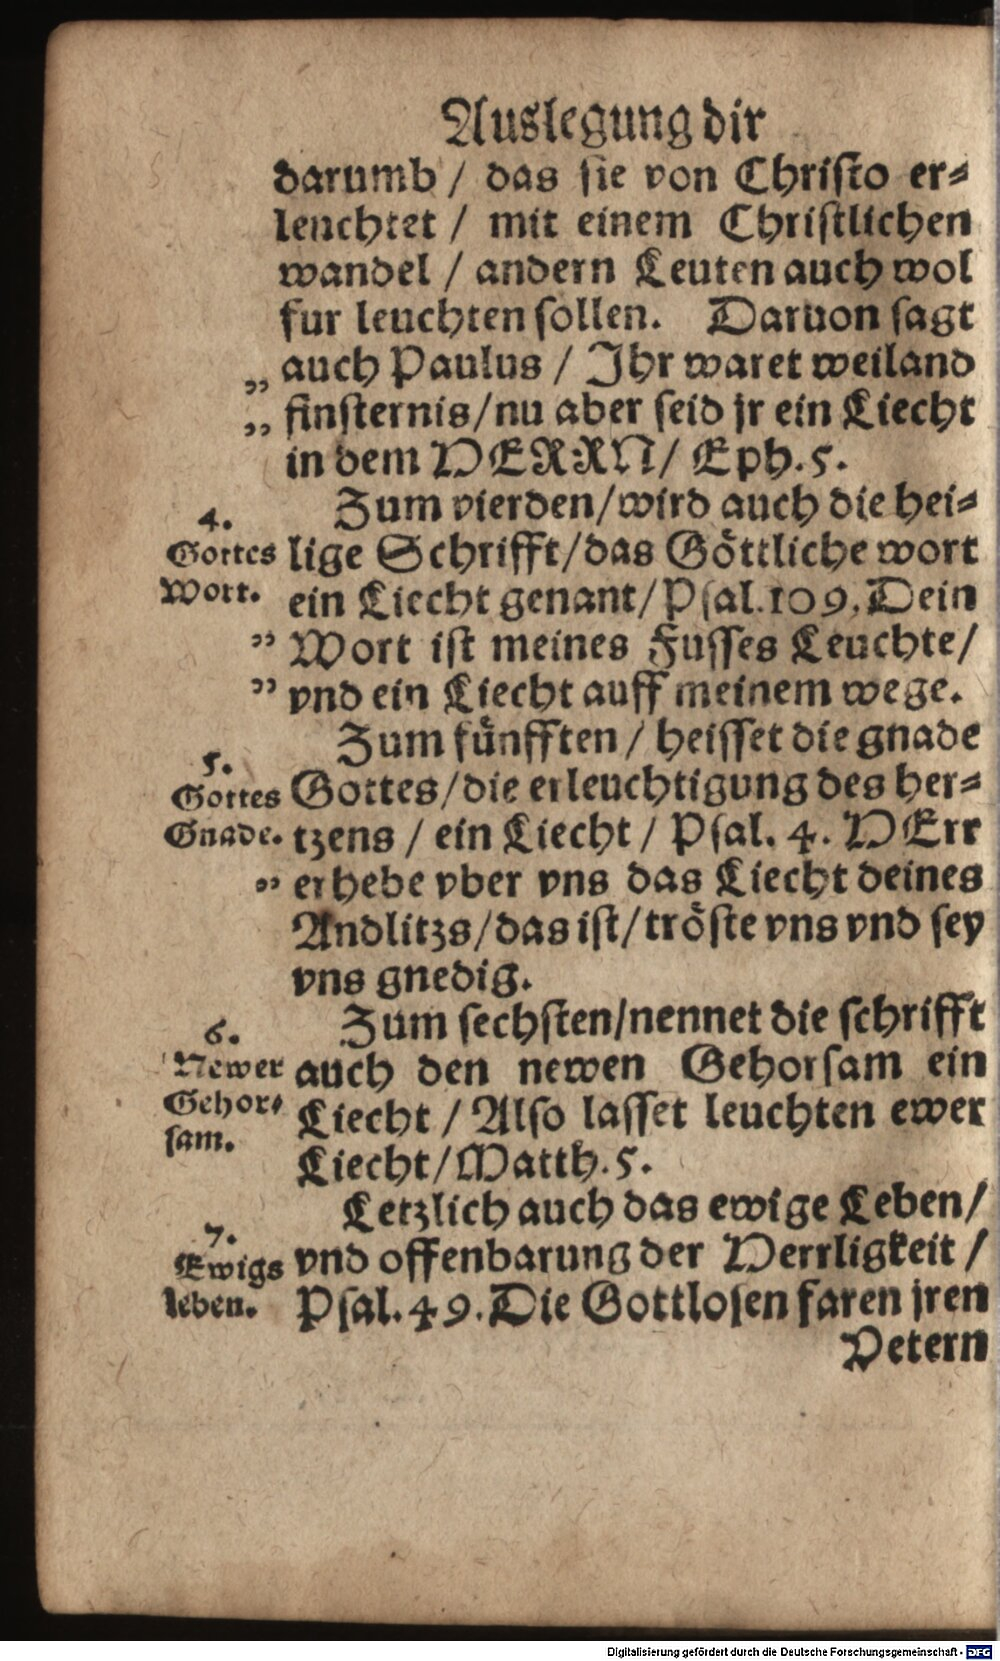 Auslegung dir
darumb / das sie von Christo er⸗
leuchtet / mit einem Christlichen
wandel / andern Leuten auch wol
fur leuchten sollen. Daruon sagt
„ auch Paulus / Jhr waret weiland
„ finsternis/nu aber seid jr ein Liecht
in dem HERRN/ Eph. 5.
4.
Zum vierden/wird auch die hei⸗
Gottes
lige Schrifft/das Göttliche wort
Wort.
ein Liecht genant/Psal. 109. Dein
„ Wort ist meines Fusses Leuchte/
„ vnd ein Liecht auff meinem wege.
Zum fünfften / heisset die gnade
5.
Gottes
Gottes/die erleuchtigung des her⸗
Gnade.
tzens / ein Liecht / Psal. 4. HErr
„ erhebe vber vns das Liecht deines
Andlitzs/das ist/tröste vns vnd sey
vns gnedig.
Zum sechsten/nennet die schrifft
6.
Newer
auch den newen Gehorsam ein
Gehor⸗
Liecht / Also lasset leuchten ewer
sam.
Liecht/Matth. 5.
Letzlich auch das ewige Leben/
7.
Ewigs
vnd offenbarung der Herrligkeit /
leben.
Psal. 49. Die Gottlosen faren jren
Vetern
Digitalisierung gefördert durch die Deutsche Forschungsgemeinschaft - DFG